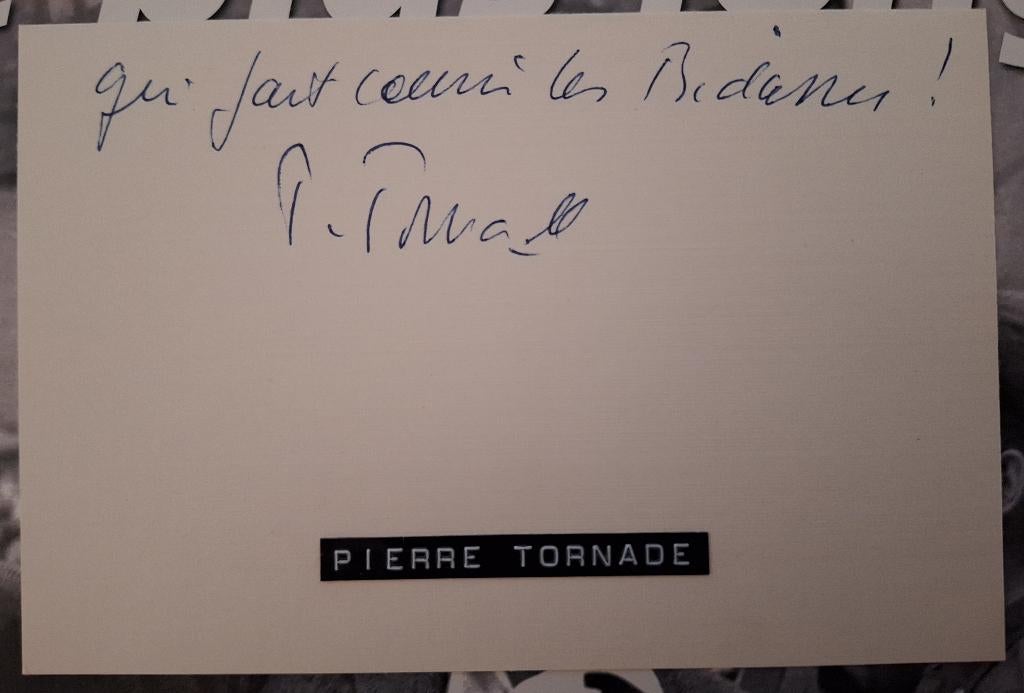 qui fait courir les Bidasses !
P. Tornade
PIERRE TORNADE